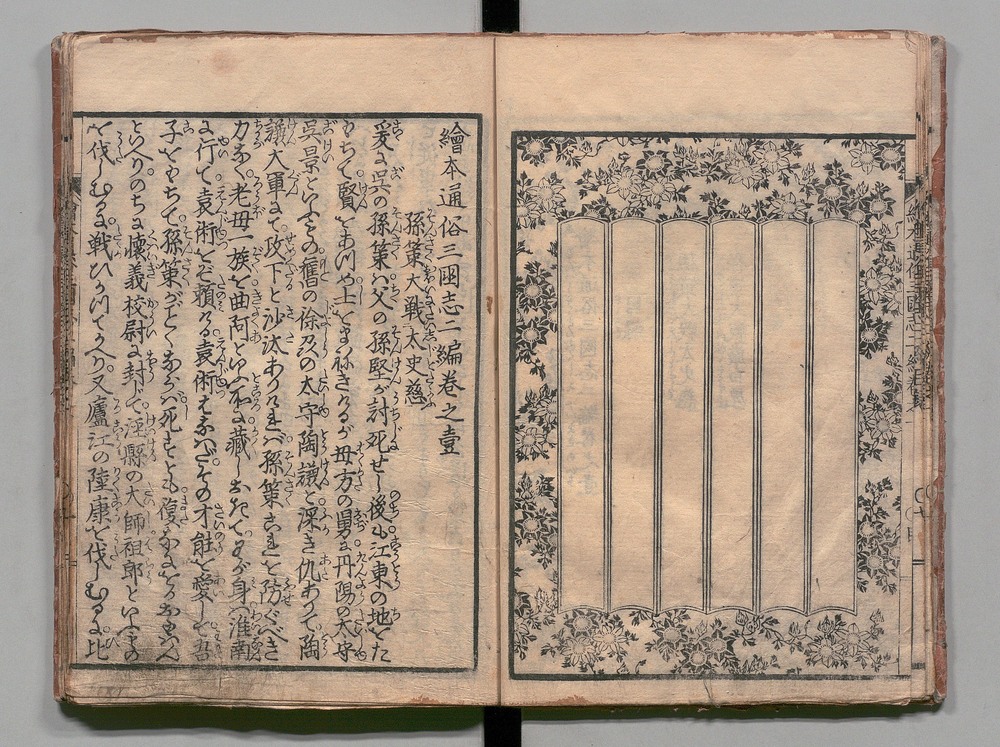 繪本通俗三國志二編巻之壹
孫策大戦太史慈
爰に呉の孫策ハ父の孫堅が討死せし後ハ江東の地にた
もちて賢をあつめ士をまねきけるが母方の舅に丹陽の太守
呉景といふもの舊の徐州の太守陶謙と深き仇ありて陶
謙大軍にて攻下と沙汰ありけれバ孫策これを防ぐべき
力なく老母一族を曲阿といふ所に藏しおきて我が身ハ淮南
に行て袁術をぞ頼ける袁術はなハだその才能を愛して吾
子をもちて孫策がごとくならバ死すとも復なにをかおもハん
といへりのちに懐義校尉に封じて涇縣の大師祖郎といふもの
を伐しむるに戦ひかつてかへり又廬江の陸康を伐しむるに比